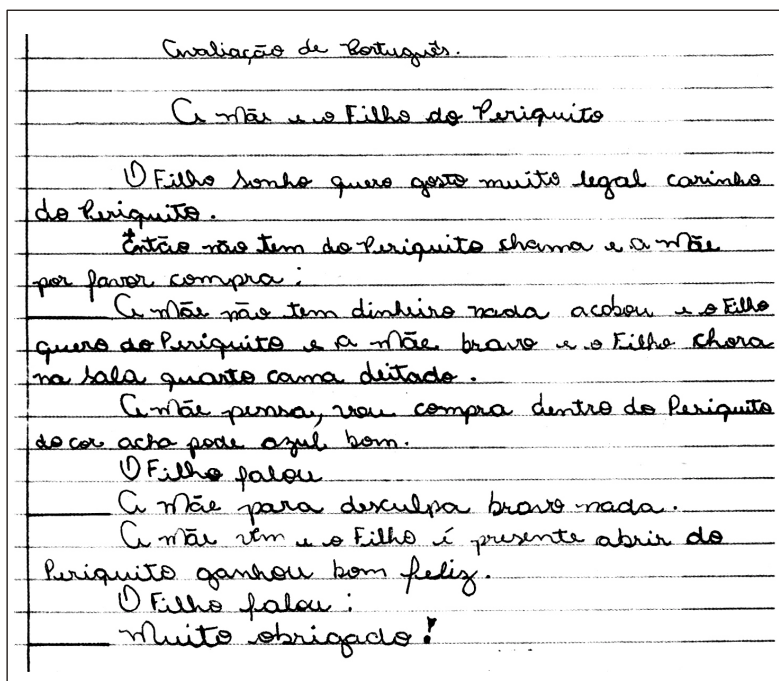 Avaliação de Português.
A mãe e o Filho do Periquito
O Filho sonho quero gosto muito legal carinho
do Periquito.
Então não tem do Periquito chama e a mãe
por favor compra:
A mãe não tem dinheiro nada acabou e o Filho
quero do Periquito e a mãe bravo e o Filho chora
na sala quarto cama deitado.
A mãe pensa, vou compra dentro do Periquito
do cor acha pode azul bom.
O Filho falou
A mãe para desculpa bravo nada.
A mãe vêm e o Filho é presente abrir do
Periquito ganhou bom feliz.
O Filho falou:
Muito obrigado!